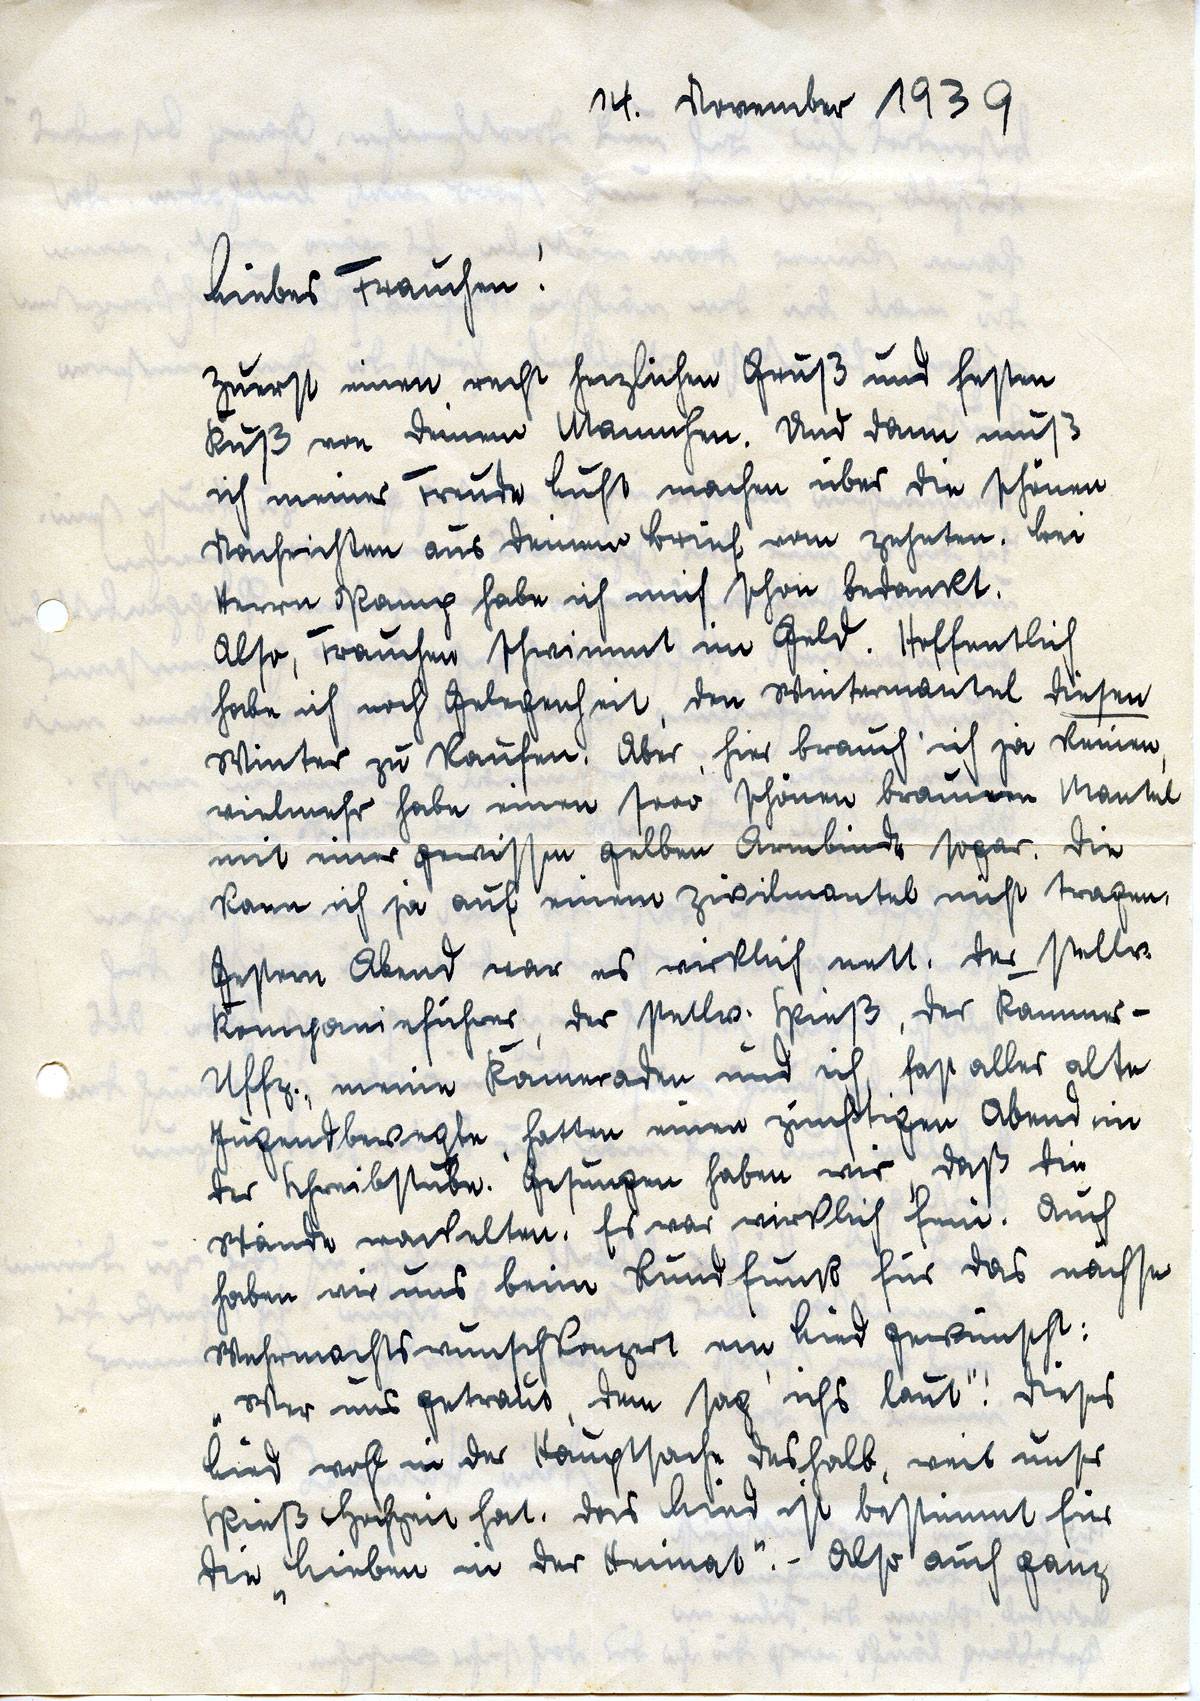 14. November 1939
Liebes Frauchen!
Zuerst einen recht herzlichen Gruß und festen
Kuß von Deinem Mannchen. Und dann muß
ich meiner Freude Luft machen über die schönen
Nachrichten aus Deinem Brief vom zehnten. Bei
Herrn Kamp habe ich mich schon bedankt.
Also, Frauchen schwimmt im Geld. Hoffentlich
habe ich noch Gelegenheit, den Wintermantel diesen
Winter zu kaufen. Aber, hier brauch' ich ja keinen,
vielmehr habe einen sooo schönen braunen Mantel
mit einer gewissen gelben Armbinde sogar. Die
kann ich ja auf einem Zivilmantel nicht tragen.
Gestern Abend war es wirklich nett. Der stellv.
Kompanieführer, der stellv. Spieß, der Kammer-
Uffz., meine Kameraden und ich, fast alles alte
Jugendbewegte, hatten einen zünftigen Abend in
der Schreibstube. Gesungen haben wir, daß die
Wände wackelten. Es war wirklich fein. Auch
haben wir uns beim Rundfunk für das nächste
Wehrmachtswunschkonzert ein Lied gewünscht:
„Wer uns getraut, dem sag' ichs laut"! Dieses
Lied wohl in der Hauptsache deshalb, weil unser
Spieß Hochzeit hat. Das Lied ist bestimmt für
die „Lieben in der Heimat". - Also auch ganz